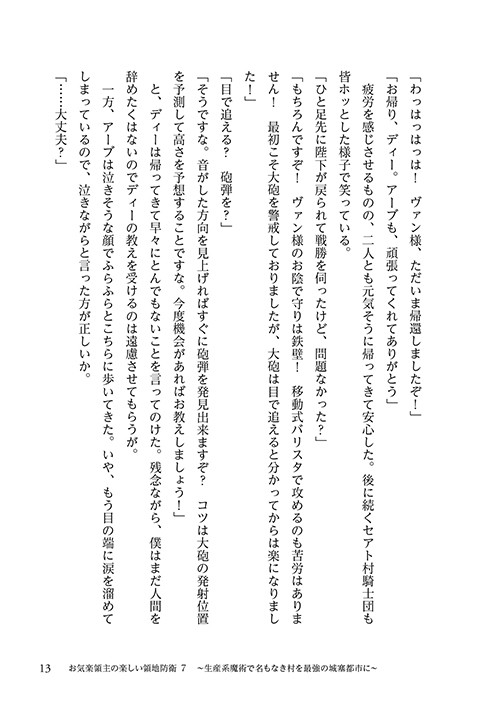 「わっはっはっは！　ヴァン様、ただいま帰還しましたぞ！」
「お帰り、ディー。アーブも、頑張ってくれてありがとう」
　疲労を感じさせるものの、二人とも元気そうに帰ってきて安心した。後に続くセアト村騎士団も
皆ホッとした様子で笑っている。
「ひと足先に陛下が戻られて戦勝を伺ったけど、問題なかった？」
「もちろんですぞ！　ヴァン様のお陰で守りは鉄壁！　移動式バリスタで攻めるのも苦労はありま
せん！　最初こそ大砲を警戒しておりましたが、大砲は目で追えると分かってからは楽になりまし
た！」
「目で追える？　砲弾を？」
「そうですな。音がした方向を見上げればすぐに砲弾を発見出来ますぞ？　コツは大砲の発射位置
を予測して高さを予想することですな。今度機会があればお教えしましょう！」
　と、ディーは帰ってきて早々にとんでもないことを言ってのけた。残念ながら、僕はまだ人間を
辞めたくはないのでディーの教えを受けるのは遠慮させてもらうが。
　一方、アーブは泣きそうな顔でふらふらとこちらに歩いてきた。いや、もう目の端に涙を溜めて
しまっているので、泣きながらと言った方が正しいか。
「……大丈夫？」
13　お気楽領主の楽しい領地防衛 7　～生産系魔術で名もなき村を最強の城塞都市に～